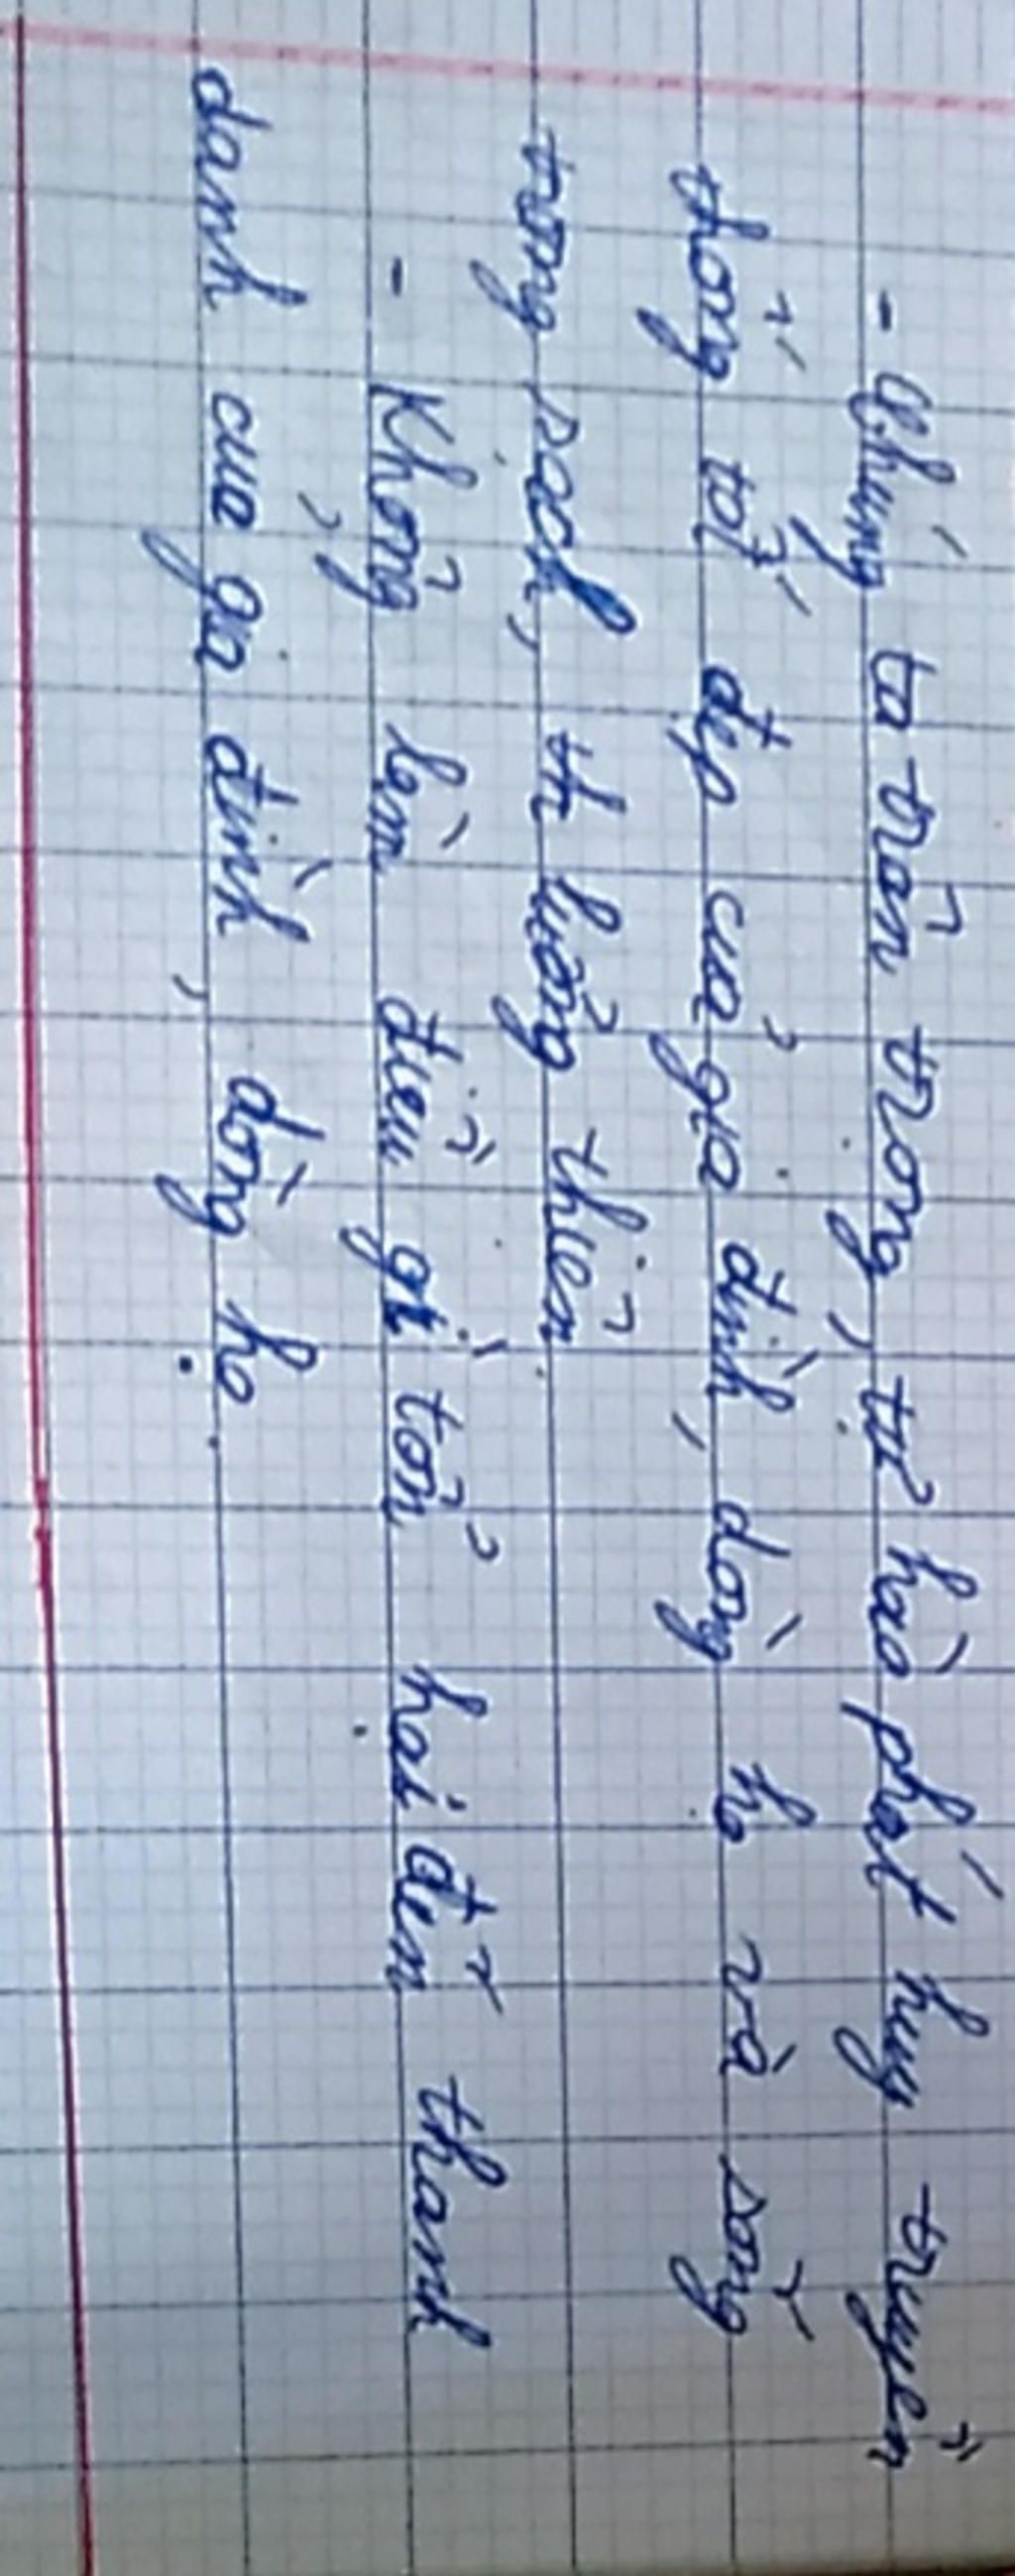 - Chúng ta trân trọng, tự hào phát huy truyền
thống tốt đẹp của gia đình, dòng họ và sống
trong sạch, lương thiện.
- Không làm điều gì tổn hại đến thanh
danh của gia đình, dòng họ.